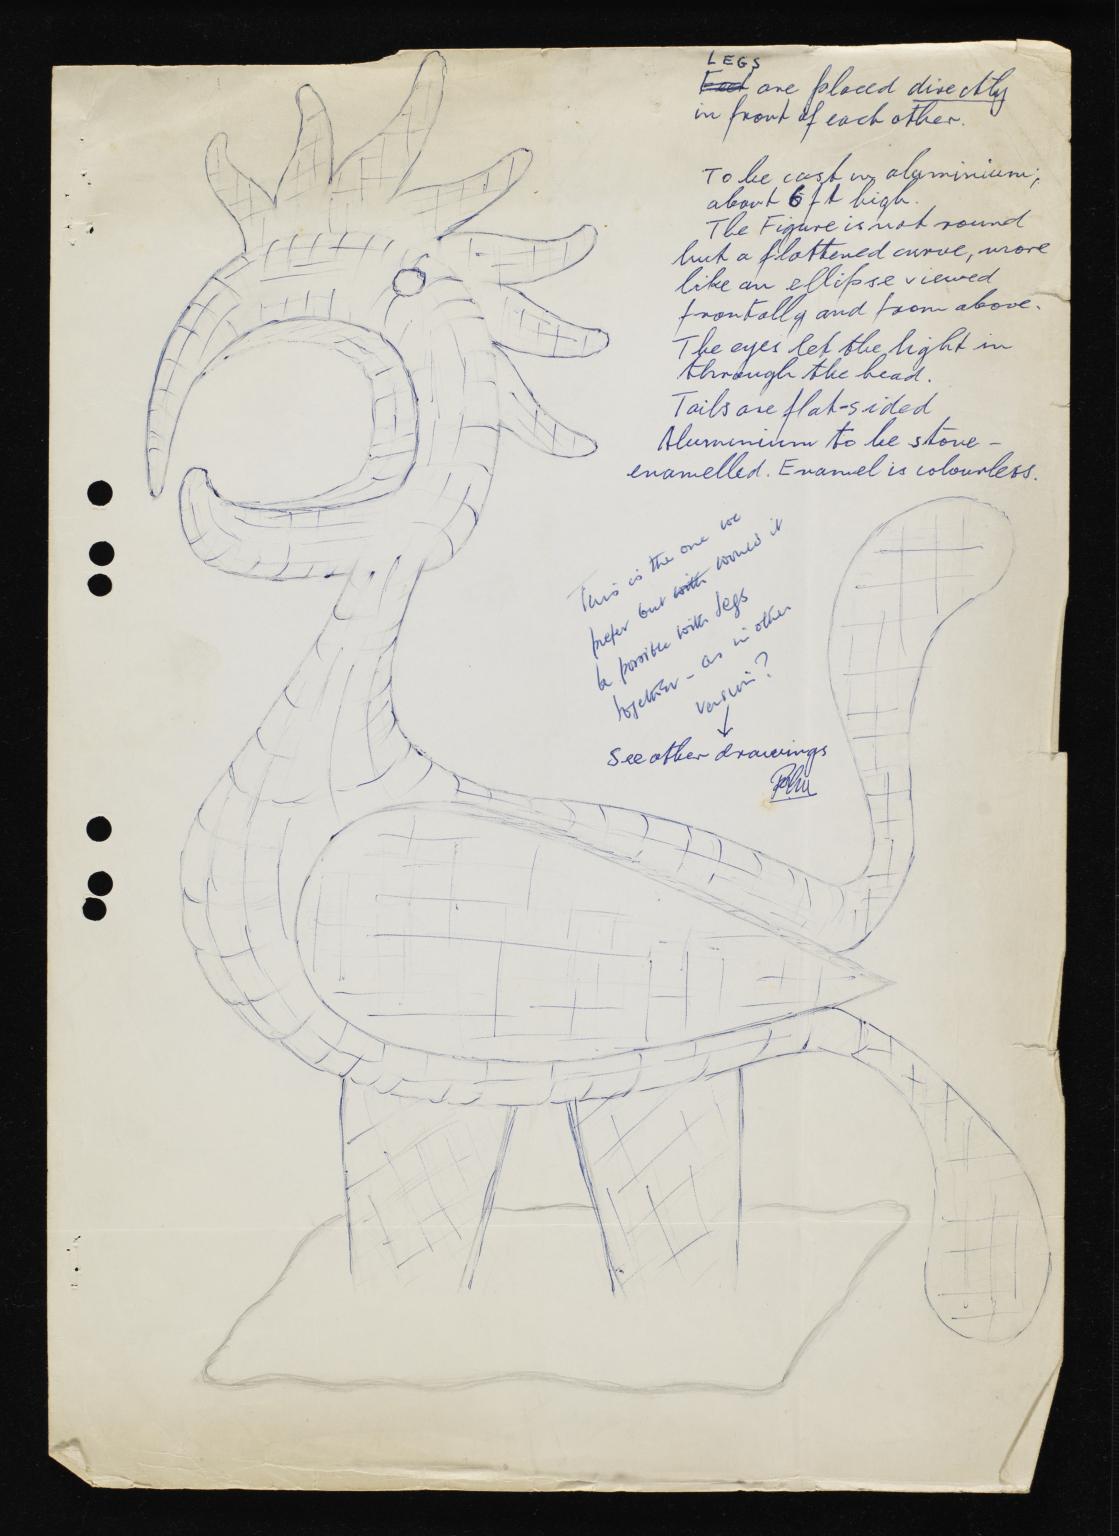 LEGS
Feet are placed directly
in front of each other.
To be cast in aluminium;
about 6 ft high.
The Figure is not round
but a flattened curve, more
like an ellipse viewed
frontally and from above.
The eyes let the light in
through the head.
Tails are flat-sided
Aluminium to be stove-
enamelled. Enamel is colourless.
This is the one we
prefer but with would it
be possible with legs
together - as in other
version?
See other drawings